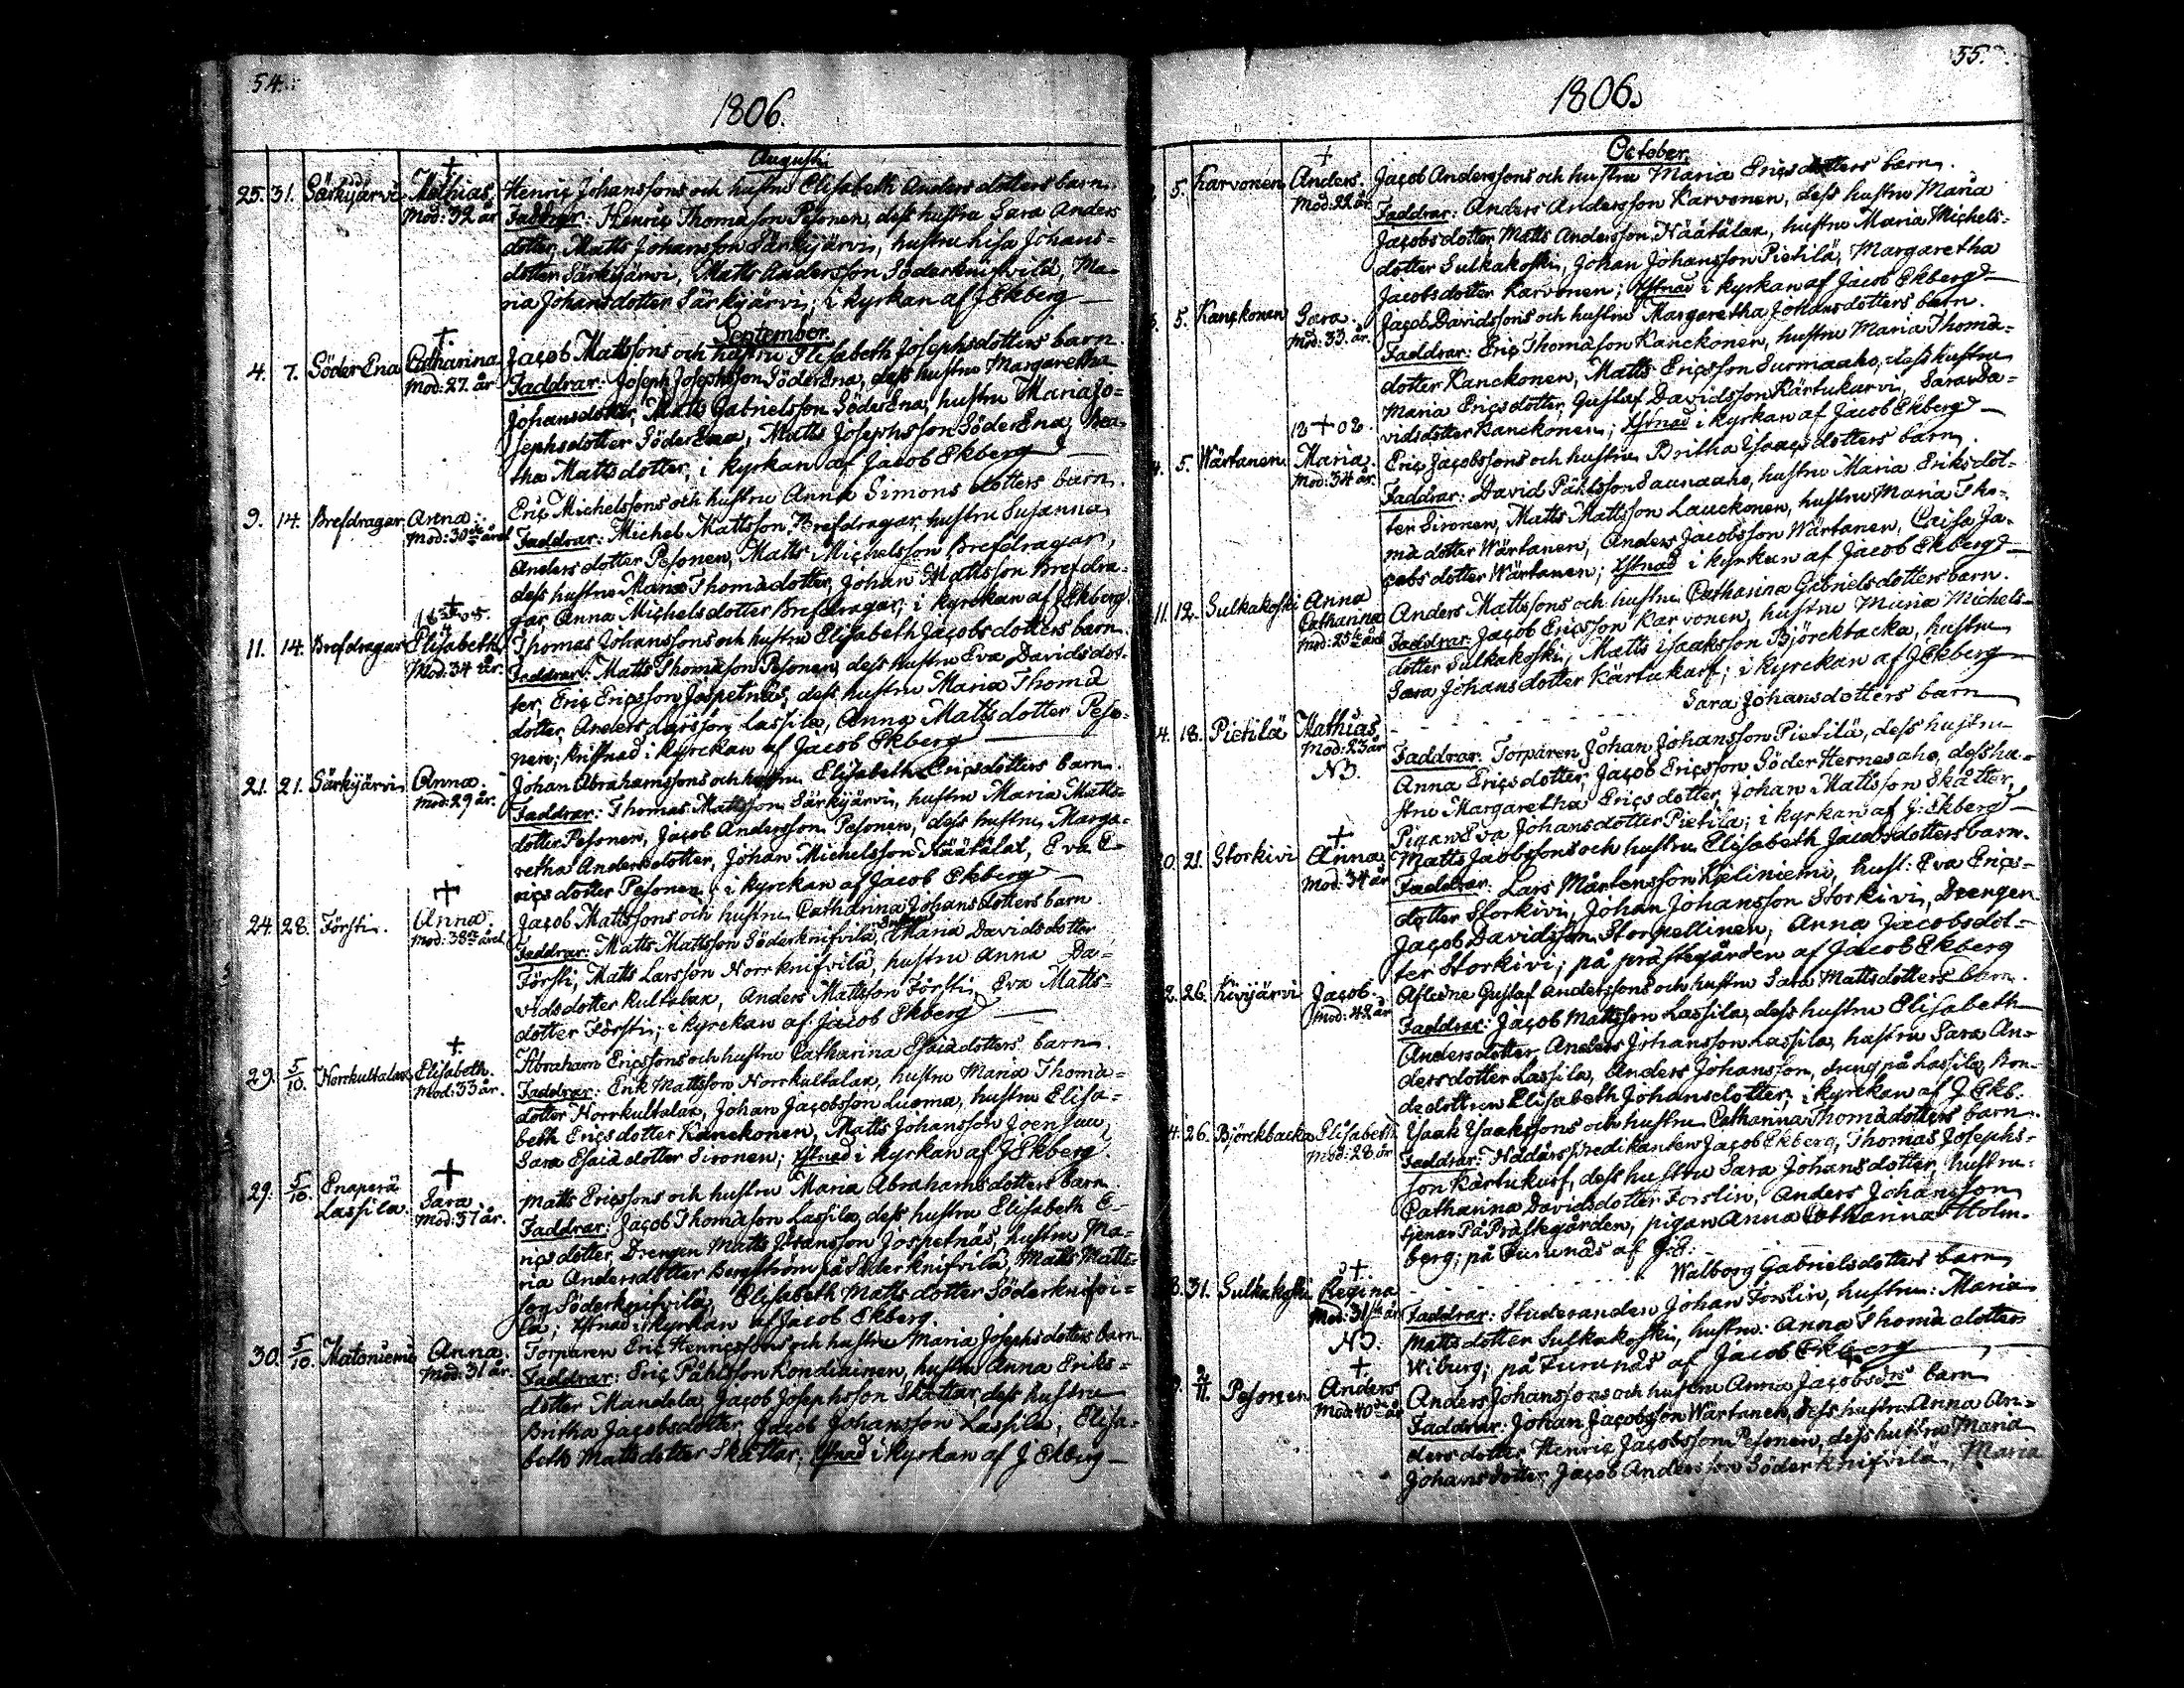 54.
1806.
Augusti
25. 31. Särkijärvi Mathias. Henriç Johanssons och hustru Elisabeth Anders dotters barn.
Mod: 32 år Faddrar: Henriç Thomasson Pesonen, dess hustru Sara Anders
dotter, Matts Johansson Särkijärvi, hustru Lisa Johans=
dotter Särkijärvi, Matts Andersson Söderknifvilä, Ma-
ria Johansdotter Särkijärvi; i kyrkan af J Ekberg
September
4. 7. SöderEna Catharina Jacob Mattssons och hustru Elisabeth Josephsdotters barn.
Mod: 27. år Faddrar: Joseph Josephsson SöderEna, dess hustru Margaretha
Johansdotter, Matts Gabrielsson SöderEna, hustru Maria Jo=
sephsdotter SöderEna, Matts Josephsson SöderEna, Brea-
tha Mattsdotter; i kyrkan af Jacob Ekberg
9. 14. Brefdragar Anna. Eriç Michelssons och hustru Anna Simons dotters barn.
Mod: 30 de året Faddrar: Michel Mattsson Brefdragar, hustru Susanna
Anders dotter Pesonen, Matts Michelsson Brefdragar,
dess hustru Maria Thomædotter, Johan Mattsson Brefdra-
gar Anna Michelsdotter Brefdragar; i kyrckan af J Ekberg.
11. 14. Brefdragar Elisabeth Thomas Johanssons och hustru Elisabeth Jacobs dotters barn
Mod: 34 år. Faddrar: Matts Thomasson Pesonen, dess hustru Eva Davidsdot-
ter, Eriç Eriçsson Jospetnäs, dess hustru Maria Thomæ
dotter, Anders Larsson Lassila, Anna Matts dotter Peso-
nen; kristnad i kyrckan af Jacob Ekberg
21. 21. Särkijärvi Anna. Johan Abrahamssons och hustru Elisabeth Eriçsdotters barn.
Mod: 29 år. Faddrar: Thomas Mattsson Särkijärvi, hustru Maria Matts-
dotter Pesonen, Jacob Andersson Pesonen, dess hustru Marga-
retha Andersdotter, Johan Michelsson Näätälat, Eva E-
riçsdotter Pesonen; i kyrckan af Jacob Ekberg
24. 28. Försti. Anna. Jacob Mattssons och hustru Catharina Johans dotters barn
Mod: 38 de året Faddrar: Matts Mattsson Söderknifvilä, Maria Davidsdotter
Försti, Matts Larsson Norrknifvilä, hustru Anna Da=
vidsdotter Kultalax, Anders Mattsson Försti, Eva Matts-
dotter Försti; i kyrckan af Jacob Ekberg
29. 5/10. Norrkultalax Elisabeth. Abraham Ericssons och hustru Catharina Esaiædotters barn.
Mod: 33 år. Faddrar: Erik Mattsson Norrkultalax, hustru Maria Thomæ=
dotter Norrkultalax, Johan Jacobsson Luoma, hustru Elisa=
beth Eriçsdotter Kanckonen, Matts Johansson Joensuu,
Sara Esaiædotter Sironen; Xstnad i kyrkan af J Ekberg.
29. 5/10. Enaperä Lassila. Sara. Matts Ericssons och hustru Maria Abrahamsdotters barn
Mod: 37 år. Faddrar: Jacob Thomasson Lassila, dess hustru Elisabeth E-
riçsdotter, Drengen Matts Johansson Jospetnäs, hustru Ma-
ria Andersdotter Bergström på Söderknifvila, Matts Matts-
son Söderknifvilä, Elisabeth Matts dotter Söderknifvi=
lä; Xstnad i kyrkan af Jacob Ekberg.
30. 5/10. Matoniemi Anna. Torparen Eriç Henriçssons och hustru Maria Josephsdotters barn
Mod: 31 år. Faddrar: Eriç Påhlsson Kondiainen, hustru Anna Eriks=
dotter Mandela, Jacob Josephsson Skättar, dess hustru
Britha Jacobsdotter, Jacob Johansson Lassila, Elisa-
beth Mattsdotter Skättar; Xstnad i kyrkan af J Ekberg
55.
1806.
October.
5. Karvonen Anders. Jacob Anderssons och hustru Maria Eriçsdotters barn.
Mod: 22 år. Faddrar: Anders Andersson Karvonen, dess hustru Maria
Jacobsdotter, Matts Andersson Näätälax, hustru Maria Michels=
dotter Sulkakoski, Johan Johansson Pietilä, Margaretha
Jacobsdotter Karvonen; Xstnad i kyrkan af Jacob Ekberg
5. Kanckonen Sara. Jacob Davidssons och hustru Margaretha Johansdotters barn.
Mod: 33. år. Faddrar: Eriç Thomasson Kanckonen, hustru Maria Thomæ-
dotter Kanckonen, Matts Eriçsson Surmaaho, dess hustru
Maria Eriçsdotter, Gustaf Davidsson Kärtukarvi, Sara Da=
vidsdotter Kanckonen; Xstnad i kyrkan af Jacob Ekberg
18 + 08.
5. Wärtanen Maria. Eriç Jacobssons och hustru Britha Ysaacsdotters barn.
Mod: 34 år. Faddrar: David Påhlsson Saunaaho, hustru Maria Eriksdot-
ter Sironen, Matts Mattsson Lauckonen, hustru Maria Tho-
mædotter Wärtanen, Anders Jacobsson Wärtanen, Caisa Ja-
cobsdotter Wärtanen; Xstnad i kyrkan af Jacob Ekberg
11. 12. Sulkakoski Anna Catharina Anders Mattssons och hustru Catharina Gabrielsdotters barn.
Mod: 25 te året Faddrar: Jacob Eriçsson Karvonen, hustru Maria Michels-
dotter Sulkakoski, Matts Isaaksson Björckbacka, hustru
Sara Johansdotter Kärtukarf; i kyrckan af J Ekberg
Sara Johansdotters barn
4. 18. Pietilä Mathias
Mod: 23 år Faddrar: Torparen Johan Johansson Pietilä, dess hustru
NB. Anna Eriçsdotter, Jacob Eriçsson SöderHernesaho, dess hu=
stru Margaretha Eriçsdotter, Johan Mattsson Skätter,
Pigan Eva Johansdotter Pietilä; i kyrkan af J: Ekberg
0. 21. Storkivi Anna Matts Jacobssons och hustru Elisabeth Jacobsdotters barn.
Mod: 34 år Faddrar: Lars Mårtensson Kaliniemi, hust: Eva Eriçs-
dotter Storkivi, Johan Johansson Storkivi, Drengen
Jacob Davidsson Storpellinen, Anna Jacobsdot=
ter Storkivi; på prästegården af Jacob Ekberg
2. 26. Kivijärvi Jacob. Aflidne Gustaf Anderssons och hustru Sara Mattsdotters barn.
Mod: 42 år Faddrar: Jacob Mattsson Lassila, dess hustru Elisabeth
Andersdotter, Anders Johansson Lassila, hustru Sara An-
dersdotter Lassila, Anders Johansson, dreng på Lassila, Bon-
dedottren Elisabeth Johansdotter; i kyrckan af J. Ekb.
4. 26. Björckbacka Elisabeth Ysaak Ysaakssons och hustru Catharina Thomædotters barn
Mod: 28 år Faddrar: Nådårs Predikanten Jacob Ekberg, Thomas Josephs-
son Kärtukarf, dess hustru Sara Johansdotter, hustru
Catharina Davidsdotter Forslin, Anders Johansson
tjenar På Prästegården, pigan Anna Catharina Holm-
berg; på Furunäs af J. E.
Walborg Gabrielsdotters barn
31. Sulkakoski Regina
Mod: 31 sta år Faddrar: Studeranden Johan Forslin, hustru: Maria
NB. Mattsdotter Sulkakoski, hustru: Anna Thomædotter
Wiburg; på Furunäs af Jacob Ekberg
2/11. Pesonen Anders Anders Johanssons och hustru Anna Jacobsdrs barn
Mod: 40 de år Faddrar: Johan Jacobsson Wärtanen, dess hustru Anna An-
ders dotter, Henriç Jacobsson Pesonen, dess hustru Maria
Johansdotter, Jacob Andersson Söderknifvilä, Maria